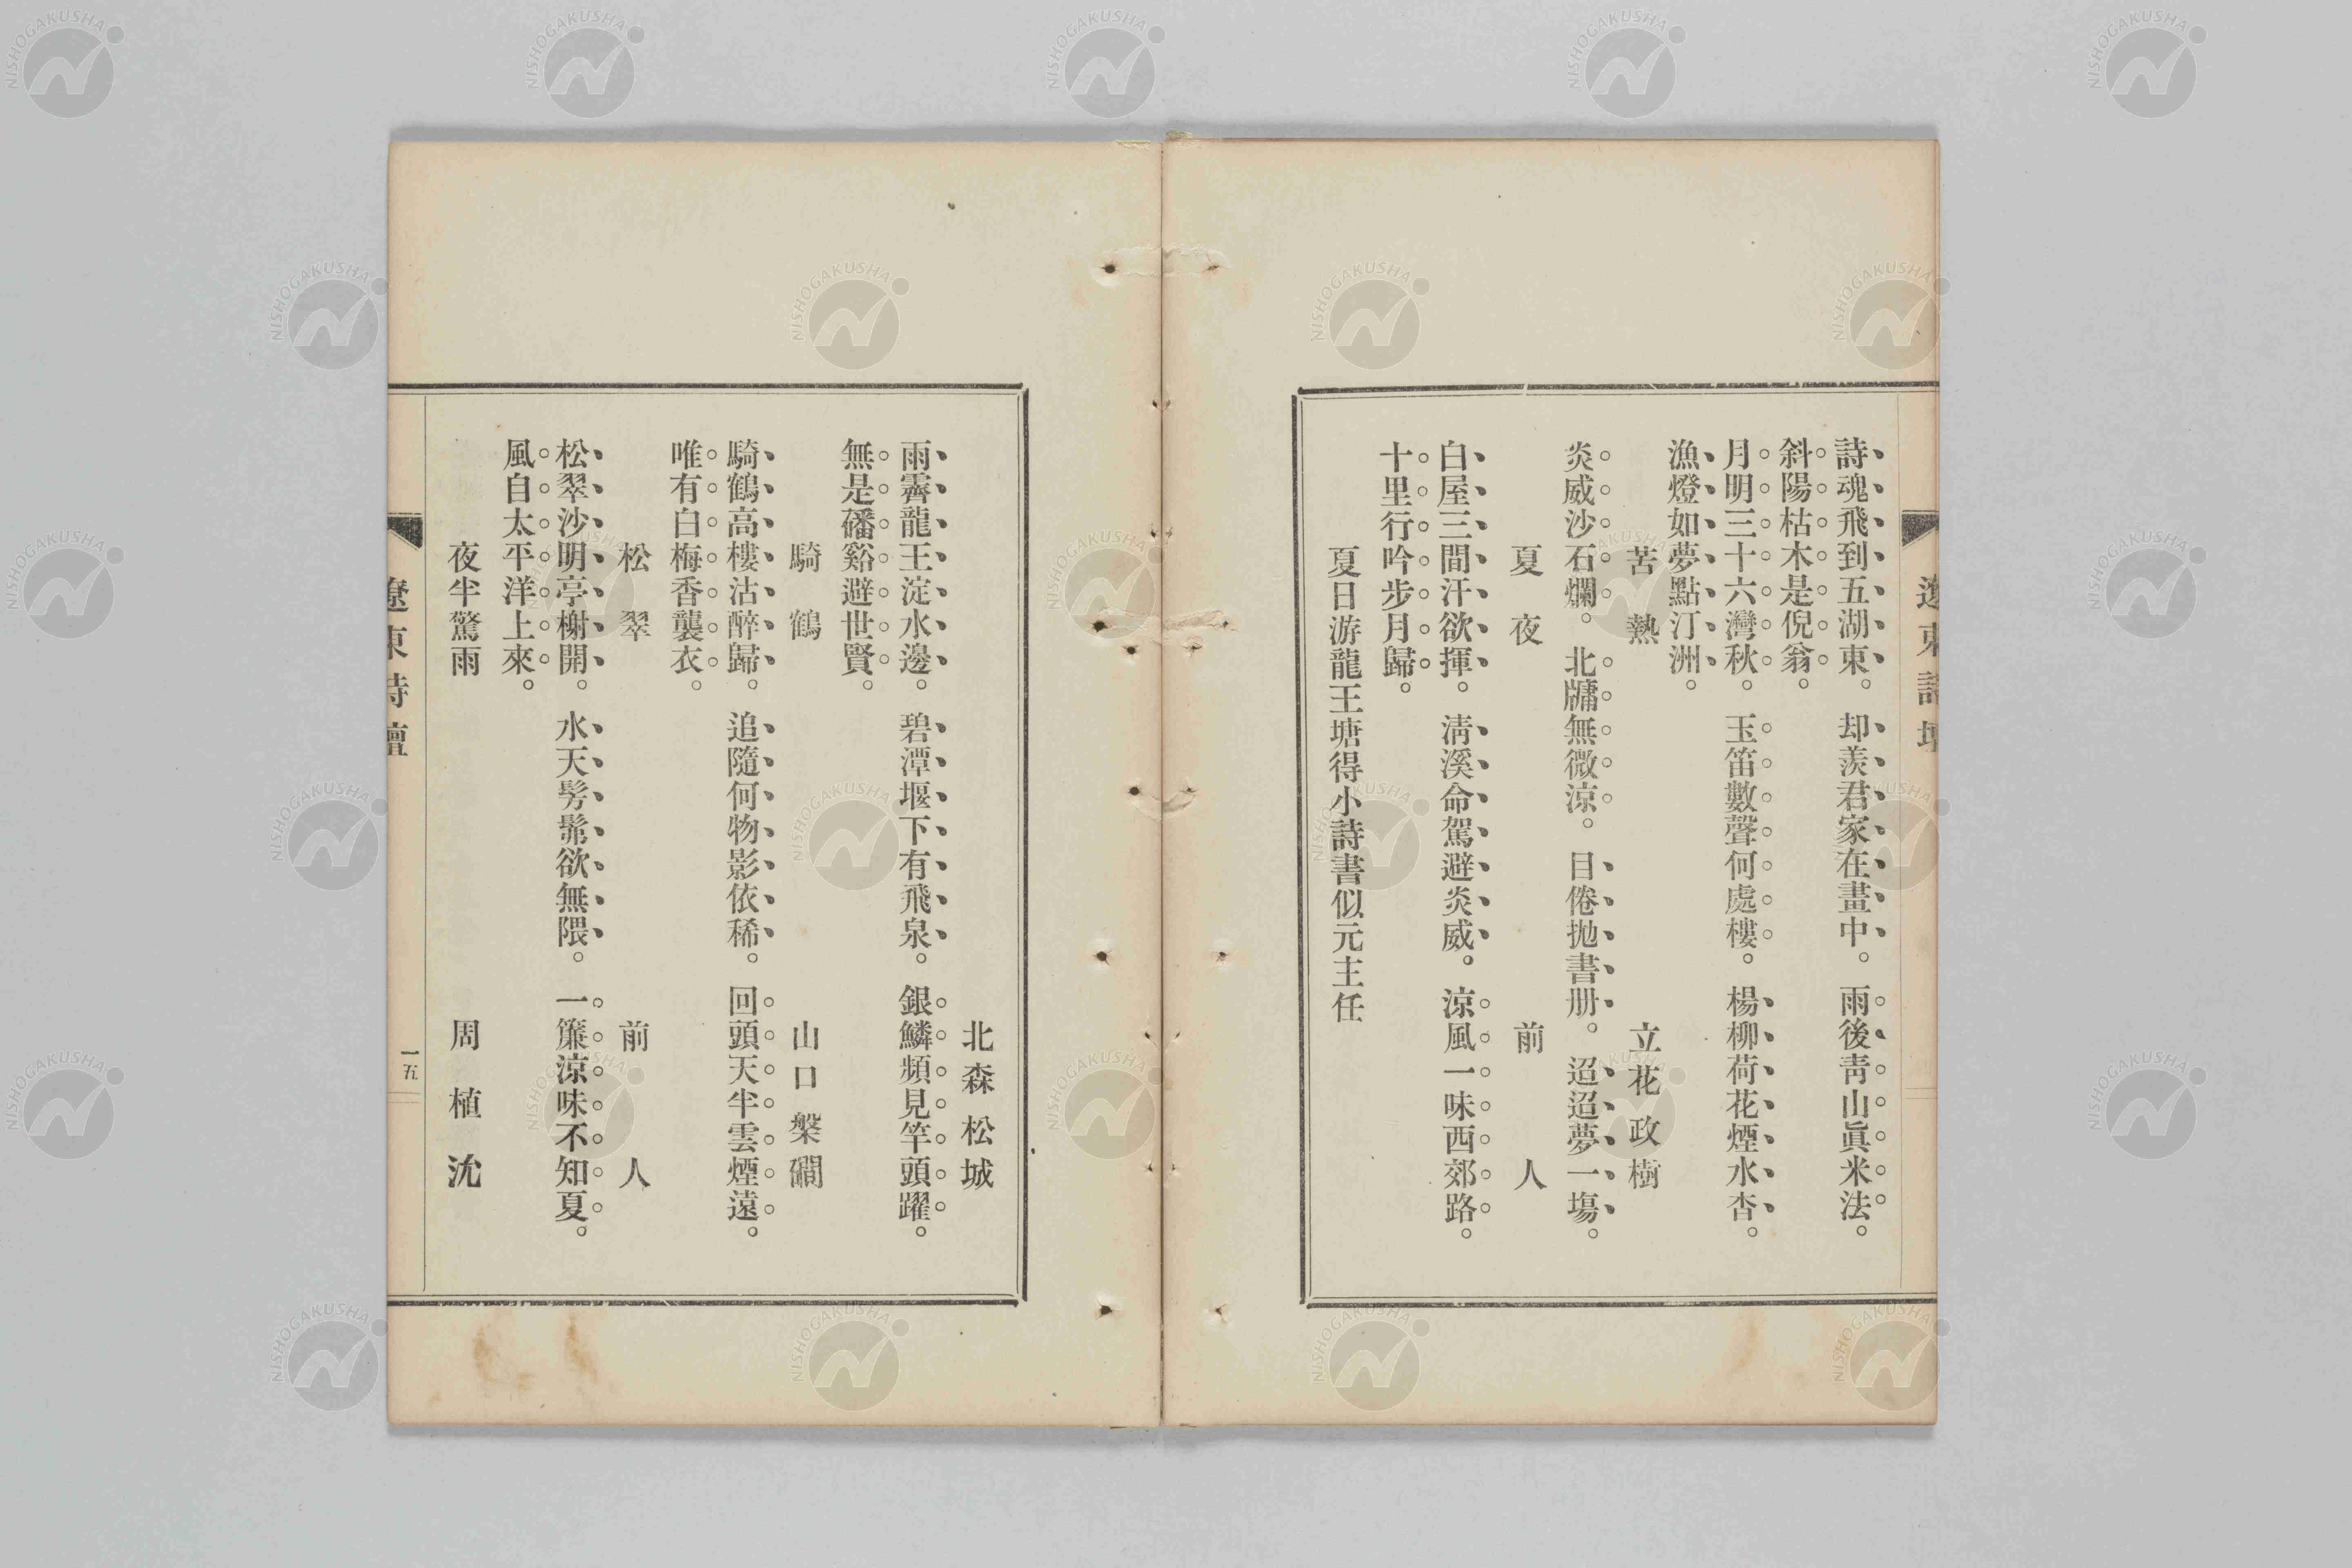 詩魂飛到五湖東。却羨君家在畫中。雨後靑山眞米法。
斜陽枯木是倪翁。
月明三十六灣秋。玉笛數聲何處樓。楊柳荷花煙水杳。
漁燈如夢點汀洲。
苦熱 立花政樹
炎威沙石爛。北牗無微涼。日倦抛書册。迢迢夢一塲。
夏夜 前人
白屋三間汗欲揮。淸溪命駕避炎威。涼風一味西郊路。
十里行吟步月歸。
夏日游龍王塘得小詩書似元主任
北森松城
雨霽龍王淀水邊。碧潭堰下有飛泉。銀鱗頻見竿頭躍。
無是磻谿避世賢。
騎鶴 山口槃磵
騎鶴高樓沽醉歸。追隨何物影依稀。回頭天半雲煙遠。
唯有白梅香襲衣。
松翠 前人
松翠沙明亭榭開。水天髣髴欲無隈。一簾涼味不知夏。
風自太平洋上來。
夜半驚雨 周植沈
遼東詩壇
一五
NISHOGAKUSHA